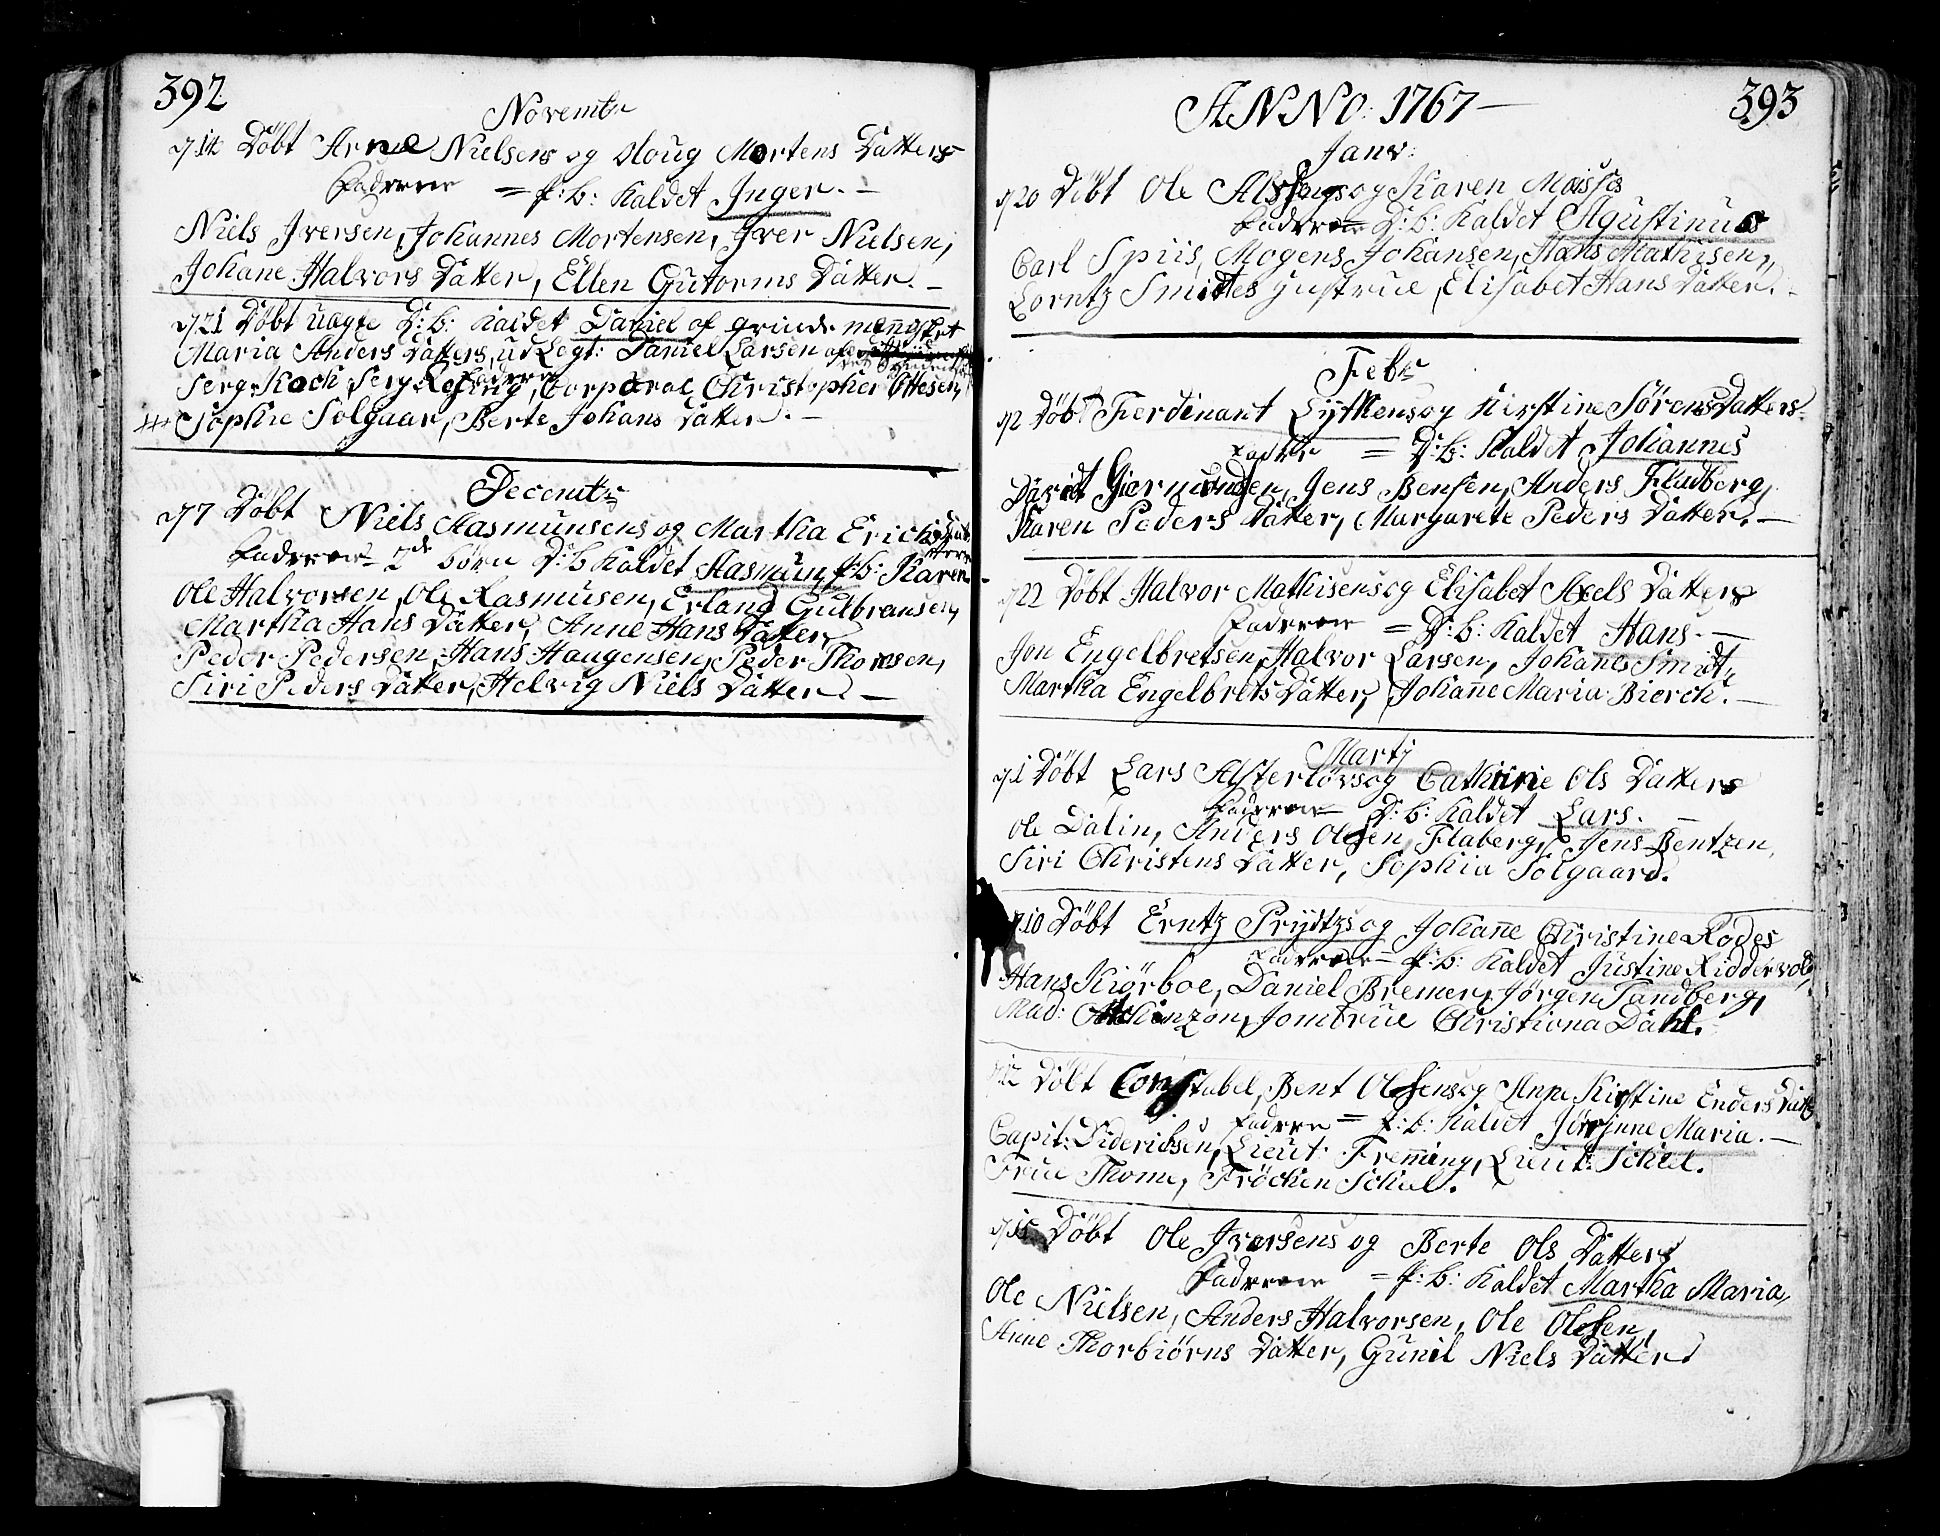 392
Novembr
14 Döbt Arne Nielsens og Aloug Mortens Datters
Fadrene = P:b: Kaldet Inger. —
Niels Iversen, Johannes Mortensen, Iver Nielsen,
Johane Halvors Datter, Ellen Gutorms Datter. —
21 Döbt uægte D:b: Kaldet Daniel af qvinde mennisket
Maria Anders Datters, udLegt: Daniel Larsen
Serg: Koch, Serg: Corporal, Christopher Ottesen,
Sophie Solgaar, Berte Johans Datter. —
Decembr
7 Döbt Niels Aasmunsens og Martha Erichs Datters
Fadrene 2de börn D:b Kaldet Aasmun, P:b: Karen
Ole Halvorsen, Ole Rasmusen, Erland Gulbransen,
Martha Hans Datter, Anne Hans Datter,
Peder Pedersen, Hans Haugensen, Peder Thoresen,
Siri Peders Datter, Helvig Niels Datter. —
ANNO: 1767 —
393
Janv:
20 Döbt Ole og Karen
Fadrene D:b: Kaldet Agustinus
Carl Spiis, Mogens Johansen, Hans Mathisen,
Lorntz Smidtes Hustrue, Elisabet Hans Datter. -
Febr
2 Döbt Ferdinant Lytkens og Kirstine Sörens Datters
= D:b: Kaldet Johannes
David Giermundsen, Jens Bensen, Anders Fladberg,
Karen Peders Datter, Margarete Peders Datter. —
22 Döbt Halvor Mathisens og Elisabet Axels Datters
Fadrene = D:b: Kaldet Hans. —
Jon Engelbretsen, Halvor Larsen, Johanes Smidt,
Martha Engelbrets Datter, Johanne Maria Bierch. —
Martj
1 Döbt Lars Alsterlövs og Cathrine Ols Datters
Fadrene D:b: Kaldet Lars. —
Ole Dalin, Anders Olsen Flaberg, Jens Bentzen,
Siri Christens Datter, Sophia Solgaard.
10 Döbt Erntz Prydtzs og Johanne Christine Rodes
Fadrene = P:b: Kaldet Justine Riddervold,
Hans Kiörboe, Daniel Bremer, Jörgen Tandberg,
Mad: Jomfrue Christiona Dahl.
12 Döbt Constabel, Bent Olsens og Anne Kirstine Enders Datt
Fadrene = P:b: Kaldet Jörginne Maria. —
Capit: Diderichsen, Lieut: Fremming, Lieut: Schiel.
Frue Thome, Fröchen Schiel.
15 Döbt Ole Iversens og Berte Ols Datters
Fadrene = P:b: Kaldet Martha Maria,
Ole Nielsen, Anders Halvorsen, Ole Olesen,
Anne Thorbiörns Datter, Gunil Niels Datter.